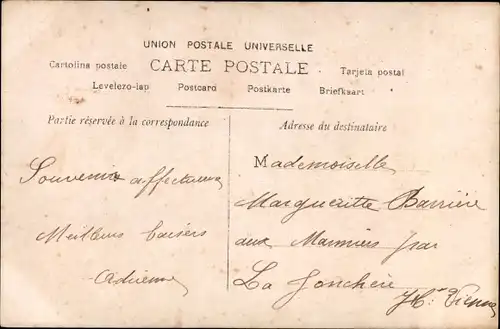 UNION POSTALE UNIVERSELLE
Cartolina postale CARTE POSTALE Tarjeta postal
Levelezo-lap Postcard Postkarte Briefkaart
Partie réservée à la correspondance
Adresse du destinataire
Souvenir affectueux
Meilleurs baisers
Adrienne
Mademoiselle
Margueritte Barrière
aux par
La Jonchère
Hte Vienne